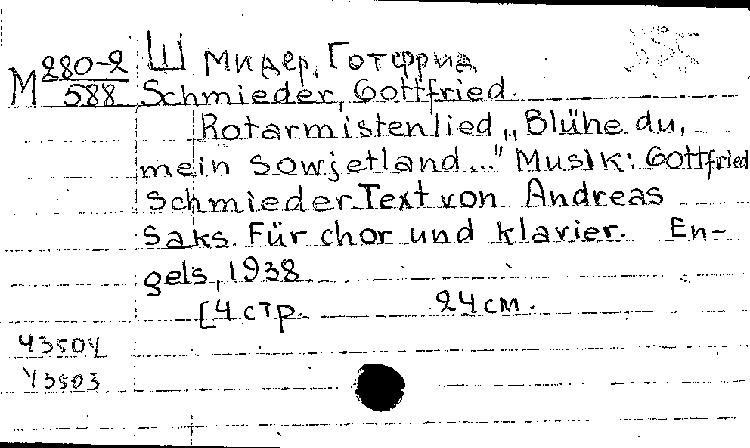 Шмидер, Готфрид
М 280-2/588 Schmieder, Gottfried.
Rotarmistenlied „Blühe du,
mein Sowjetland..." Musik: Gottfried
Schmieder. Text von Andreas
Saks. Für chor und klavier. En-
gels, 1938
[4 стр. 24 см.
43504
43503